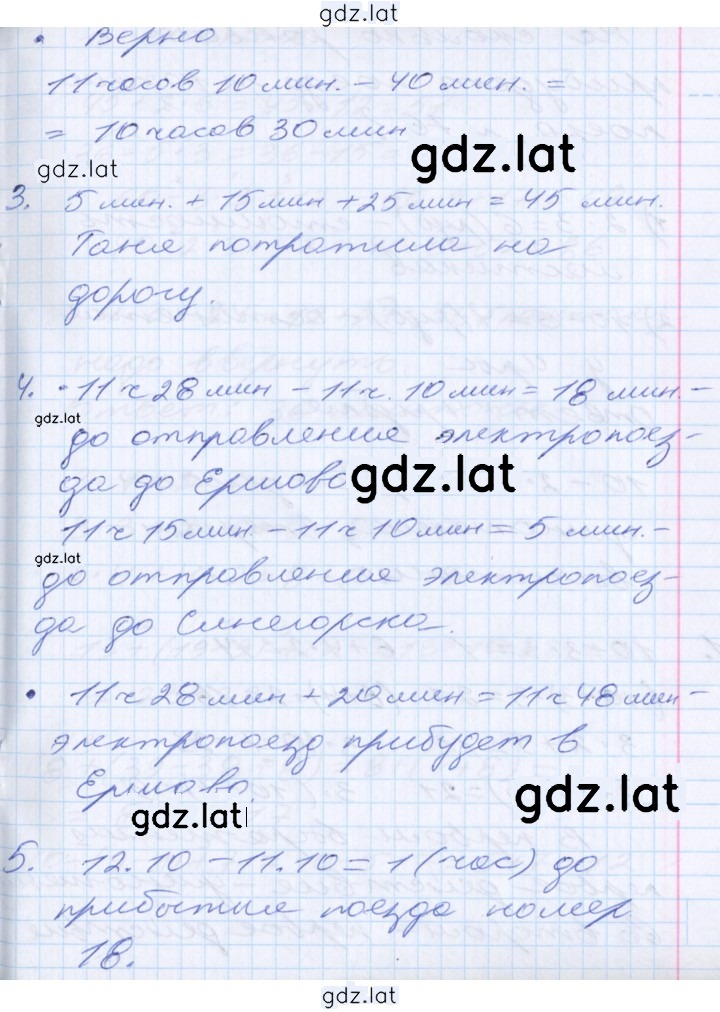 gdz.lat
• Верно
11 часов 10 мин. - 40 мин. =
= 10 часов 30 мин
gdz.lat
gdz.lat
3. 5 мин. + 15 мин + 25 мин = 45 мин.
Таня потратила на
дорогу.
4. • 11 ч 28 мин - 11 ч. 10 мин = 18 мин. -
gdz.lat
до отправление электропоез-
да до Ершово
gdz.lat
11 ч 15 мин. - 11 ч 10 мин = 5 мин. -
gdz.lat
до отправление электропоез-
да до Синегорска.
• 11 ч 28 мин + 20 мин = 11 ч 48 мин -
электропоезд прибудет в
Ершово.
gdz.lat
gdz.lat
5. 12.10 - 11.10 = 1 (час) до
прибытие поезда номер
18.
gdz.lat